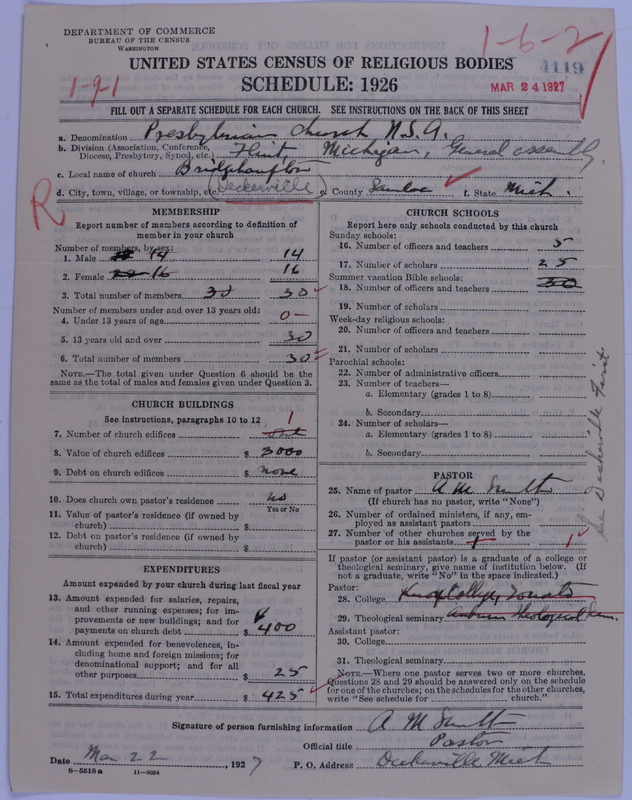 DEPARTMENT OF COMMERCE
BUREAU OF THE CENSUS
WASHINGTON
1-6-2
4119
1-91
UNITED STATES CENSUS OF RELIGIOUS BODIES
SCHEDULE: 1926
MAR 24 1927
FILL OUT A SEPARATE SCHEDULE FOR EACH CHURCH. SEE INSTRUCTIONS ON THE BACK OF THIS SHEET
a. Denomination Presbyterian Church U.S.A.
b. Division (Association, Conference, Diocese, Presbytery, Synod, etc.) Flint, Michigan, General Assembly
c. Local name of church Bridgehampton
d. City, town, village, or township, etc. (Deckerville) e. County Sanilac f. State Mich.
R
MEMBERSHIP
Report number of members according to definition of
member in your church
Number of members, by sex:
1. Male 14 14
2. Female 16 16
3. Total number of members 30 30
Number of members under and over 13 years old:
4. Under 13 years of age 0-
5. 13 years old and over 30
6. Total number of members 30
NOTE.—The total given under Question 6 should be the
same as the total of males and females given under Question 3.
CHURCH BUILDINGS
See instructions, paragraphs 10 to 12 1
7. Number of church edifices One
8. Value of church edifices $ 3000
9. Debt on church edifices $ None
10. Does church own pastor's residence No
Yes or No
11. Value of pastor's residence (if owned by
church) $
12. Debt on pastor's residence (if owned by
church) $
EXPENDITURES
Amount expended by your church during last fiscal year
13. Amount expended for salaries, repairs,
and other running expenses; for im-
provements or new buildings; and for
payments on church debt $ 400
14. Amount expended for benevolences, in-
cluding home and foreign missions; for
denominational support; and for all
other purposes $ 25
15. Total expenditures during year $ 425
CHURCH SCHOOLS
Report here only schools conducted by this church
Sunday schools:
16. Number of officers and teachers 5
17. Number of scholars 25
Summer vacation Bible schools:
18. Number of officers and teachers 30
19. Number of scholars
Week-day religious schools:
20. Number of officers and teachers
21. Number of scholars
Parochial schools:
22. Number of administrative officers
23. Number of teachers—
a. Elementary (grades 1 to 8)
b. Secondary
24. Number of scholars—
a. Elementary (grades 1 to 8)
b. Secondary
See Deckerville First
PASTOR
25. Name of pastor A M Smith
(If church has no pastor, write "None")
26. Number of ordained ministers, if any, em-
ployed as assistant pastors
27. Number of other churches served by the
pastor or his assistants 1 1
If pastor (or assistant pastor) is a graduate of a college or
theological seminary, give name of institution below. (If
not a graduate, write "No" in the space indicated.)
Pastor:
28. College Knox College, Toronto
29. Theological seminary Auburn Theological Sem.
Assistant pastor:
30. College
31. Theological seminary
NOTE.—Where one pastor serves two or more churches,
Questions 28 and 29 should be answered only on the schedule
for one of the churches; on the schedules for the other churches,
write "See schedule for church."
Signature of person furnishing information A M Smith
Official title Pastor
Date Mar 22, 1927 P. O. Address Deckerville Mich
8—5518 a 11—9054